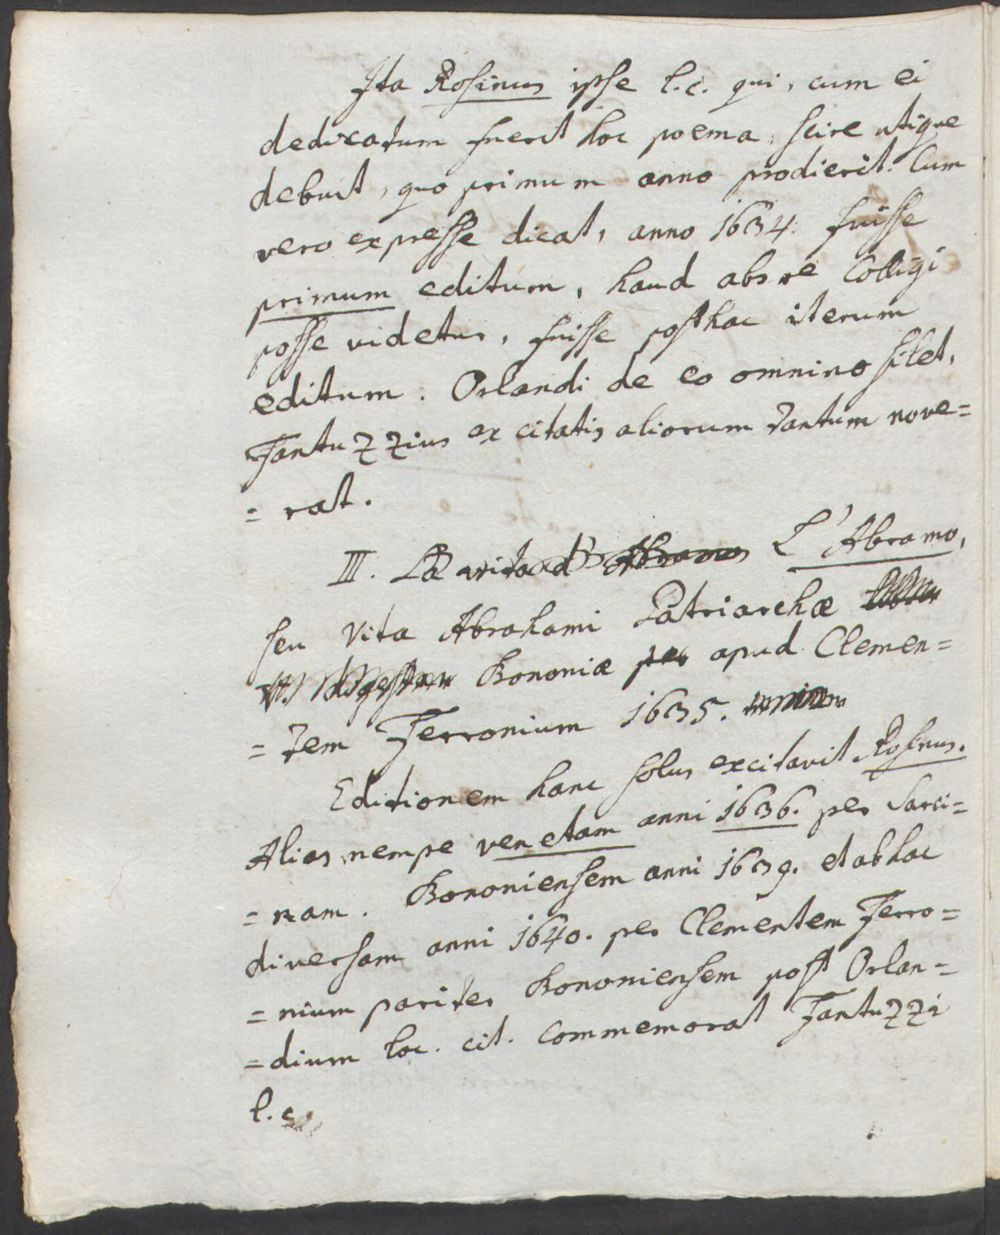 Ita Rosinus ipse l.c. qui, cum ei
dedicatum fuerit hoc poema, scire utique
debuit, quo primum anno prodierit. Cum
vero expresse dicat, anno 1634. fuisse
primum editum, haud abs re colligi
posse videtur, fuisse posthac iterum
editum. Orlandi de eo omnino silet,
Fantuzzius ex citatis aliorum tantum nove=
= rat.
III. La vita d' Abramo L'Abramo,
seu Vita Abrahami Patriarchæ
Bononiæ per apud Clemen=
= tem Ferronium 1635.
Editionem hanc solus excitavit Rosinus.
Alias nempe venetam anni 1636. per Sarci=
= nam. Bononiensem anni 1639. et ab hac
diversam anni 1640. per Clementem Ferro=
= nium pariter Bononiensem post Orlan=
= dium loc. cit. commemorat Fantuzzi
l. c.